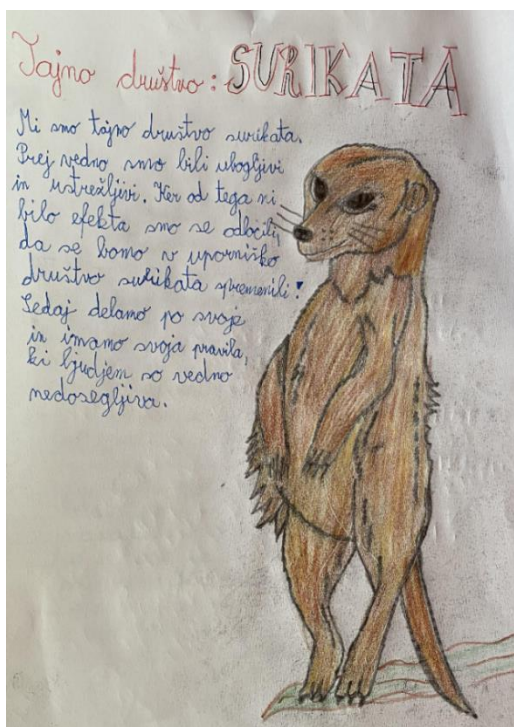 Tajno društvo: SURIKATA
Mi smo tajno društvo surikata.
Prej vedno smo bili ubogljivi
in ustrežljivi. Ker od tega ni
bilo efekta smo se odločili,
da se bomo v uporniško
društvo surikata spremenili!
Sedaj delamo po svoje
in imamo svoja pravila,
ki ljudjem so vedno
nedosegljiva.